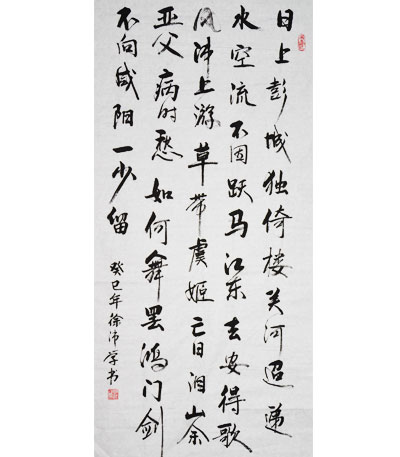 日上彭城独倚楼关河迢递
水空流不因跃马江东去安得歌
风沛上游草带虞姬亡日泪山余
亚父病时愁如何舞罢鸿门剑
不向咸阳一少留
癸巳年徐沛学书